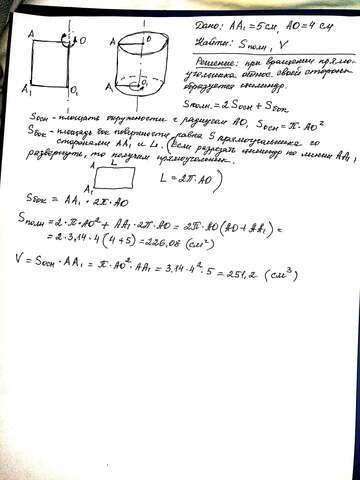 Дано: AA₁ = 5 см, AO = 4 см
Найти: Sполн, V
Решение: при вращении прямо-
угольника относ. своей стороны
образуется цилиндр.
Sполн. = 2Sосн + Sбок
A O
A₁ O₁
A O
A₁ O₁
Sосн - площадь окружности с радиусом AO, Sосн = π·AO²
Sбок - площадь бок поверхности равна S прямоугольника со
сторонами AA₁ и L. (Если разрезать цилиндр по линии AA₁,
развернуть, то получим прямоугольник.
A L
A₁
L = 2π·AO)
Sбок = AA₁ · 2π·AO
Sполн = 2·π·AO² + AA₁·2π·AO = 2π·AO(AO + AA₁) =
= 2·3,14·4(4+5) = 226,08 (см²)
V = Sосн · AA₁ = π·AO²·AA₁ = 3,14·4²·5 = 251,2 (см³)